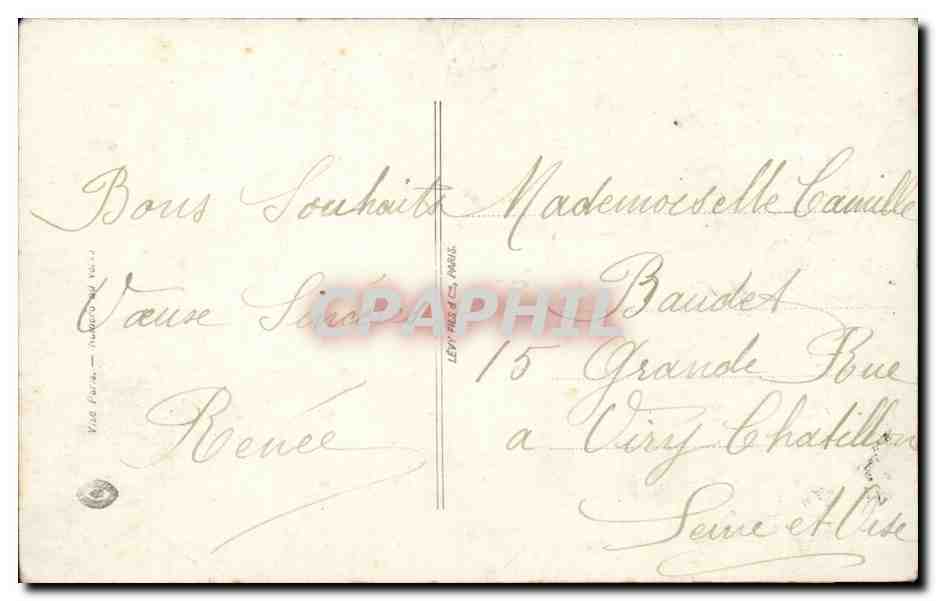 Bons Souhaits
Vœuxe Sincères
Renée
Mademoiselle Camille
Baudet
15 Grande Rue
a Viry Chatillon
Seine et Oise
LÉVY FILS & Cie, PARIS.
Visé Paris. — Numéro au verso
CPAPHIL